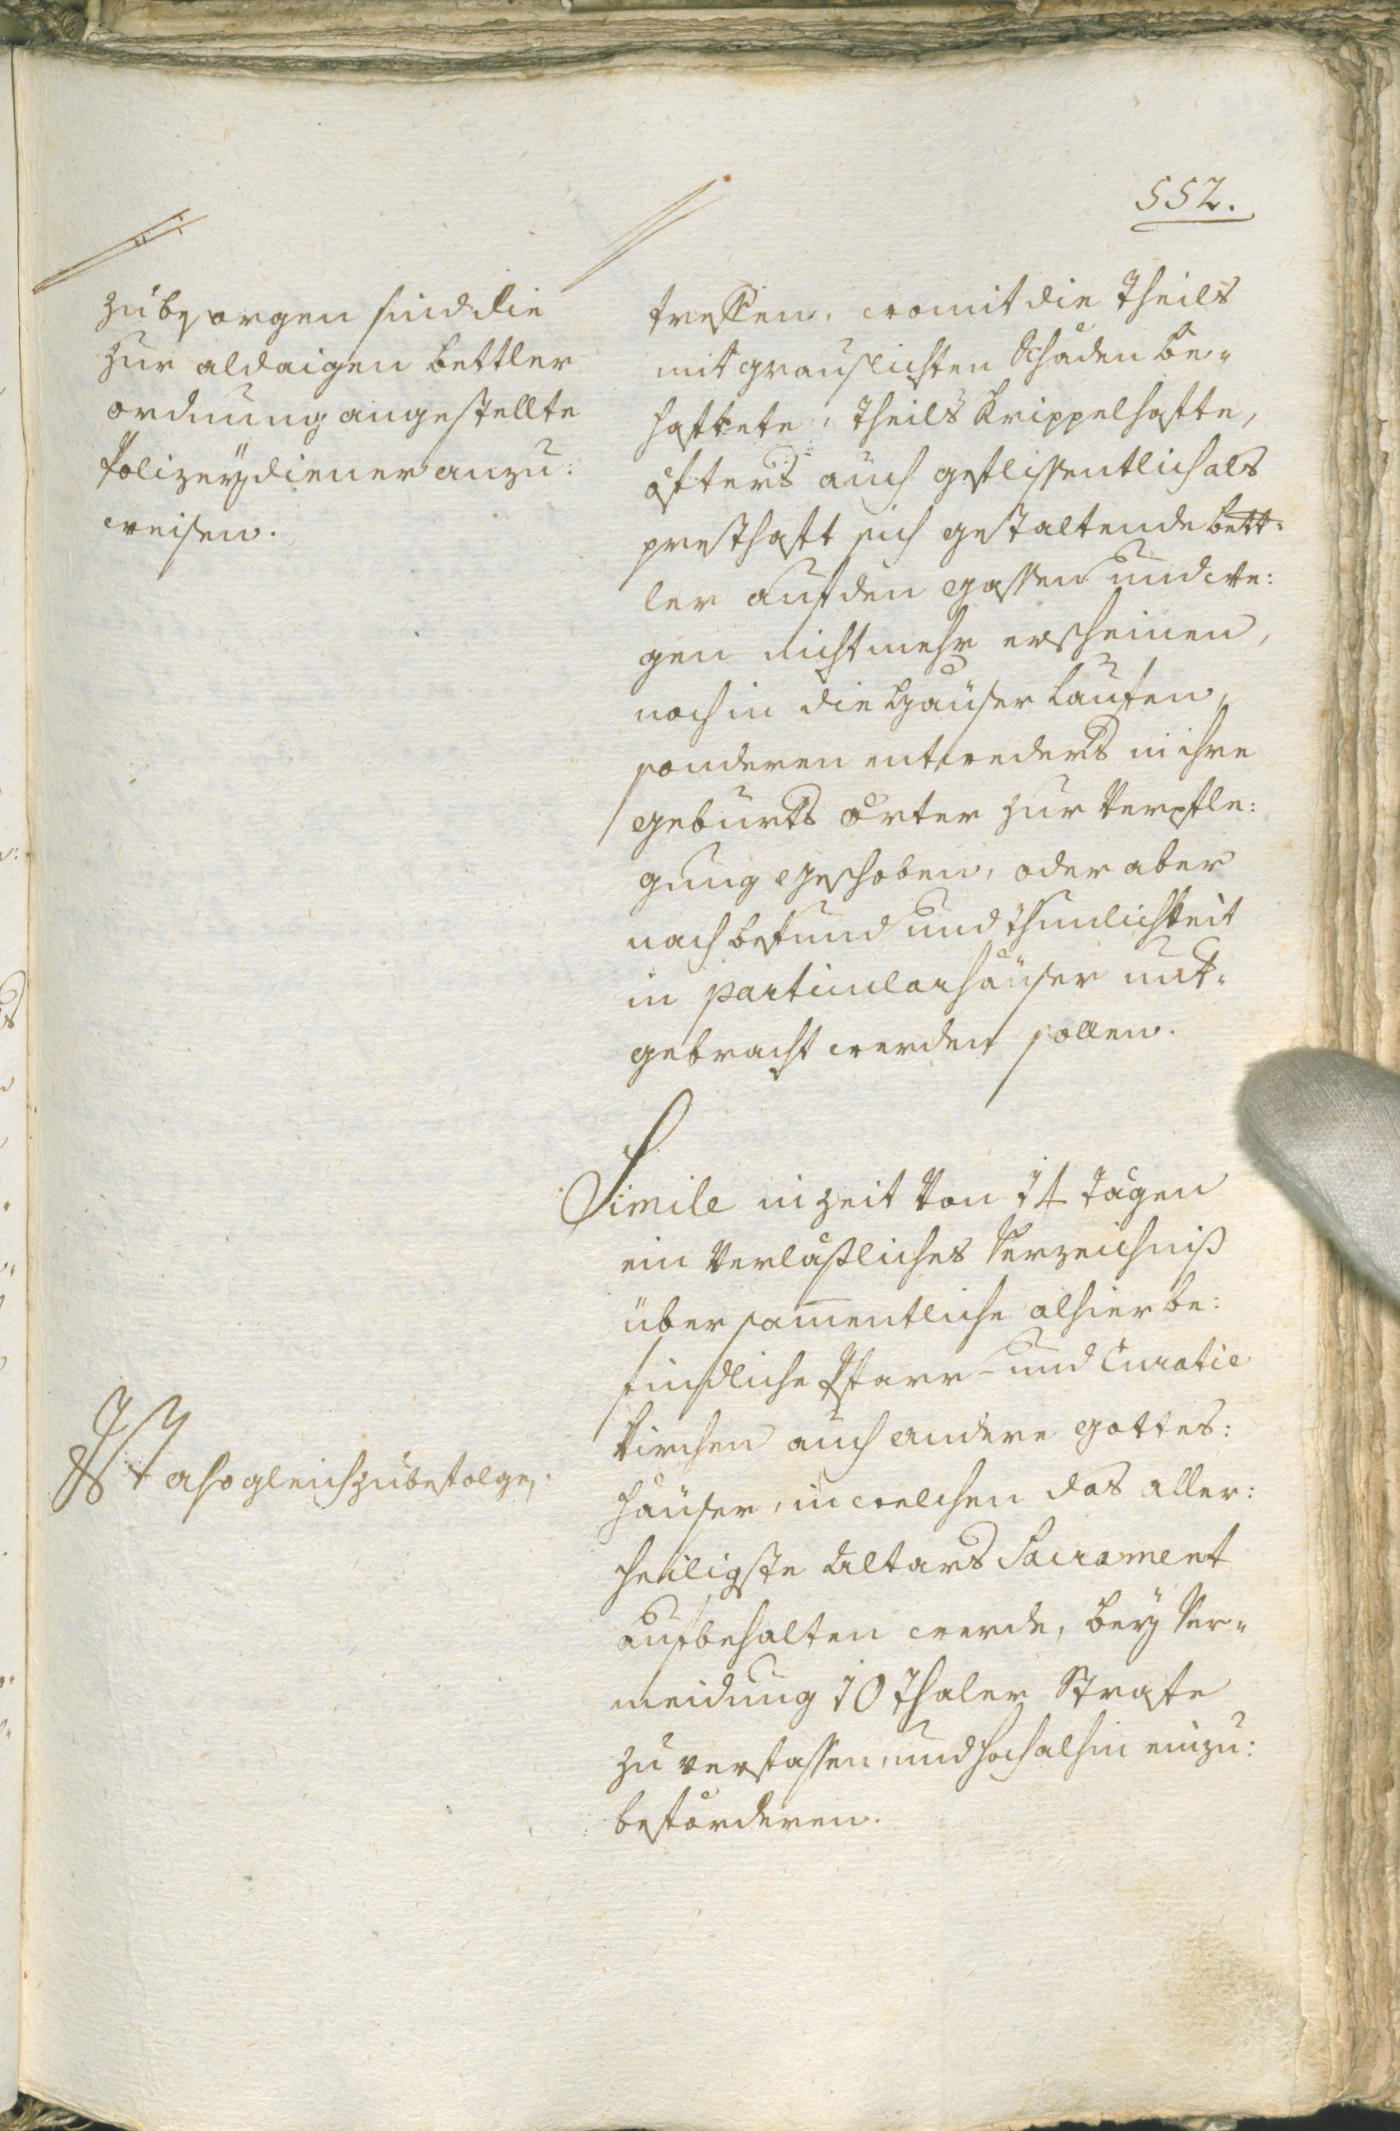 552.
zu besorgen sind die
zur aldaigen bettler
ordnung angestellte
Polizeÿdiener anzu:
weisen.
treffen, womit die Theils
mit grauslichsten Schäden be-
haftete, Theils Krippelhafte,
öfters auch geflissentlich als
presthaft sich gestaltende bett-
ler auf den gassen und we:
gen nicht mehr erscheinen,
noch in die Häuser lauffen,
sonderen entweders in ihre
geburts örter zur Verpfle:
gung geschoben, oder aber
nach befund und thunlichkeit
in particularhäuser unt-
gebracht werden sollen.
Simile in zeit von 14 Tägen
ein Verläßliches Verzeichniß
über samentliche alhier be:
findliche Pfarr- und Curatie
Kirchen auch andere gottes:
häuser, in welchen das aller:
heiligste Altars Sacrament
aufbehalten werde, beÿ Ver-
meidung 10 Thaler Strafe
zu verfassen, und hochalhin einzu:
beförderen.
Ist alsogleich zu befolgen.